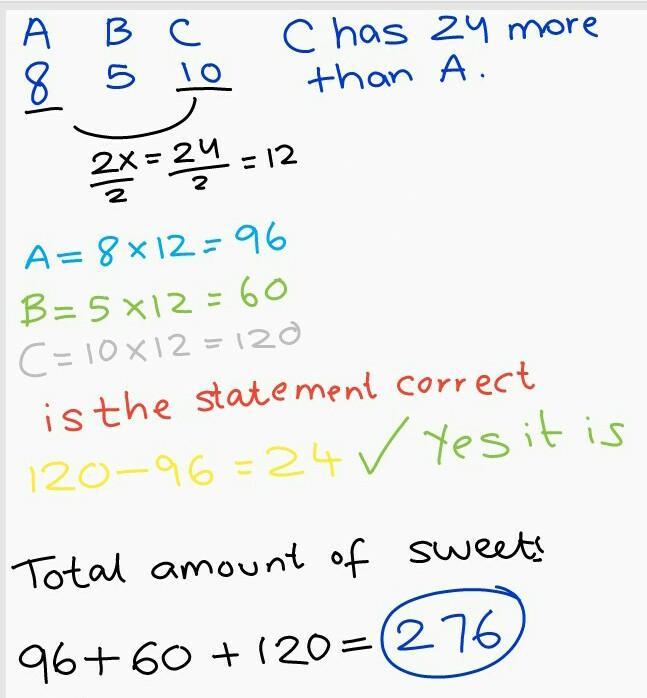 A B C C has 24 more
8 5 10 than A.
2x/2 = 24/2 = 12
A = 8 × 12 = 96
B = 5 × 12 = 60
C = 10 × 12 = 120
is the statement correct
120 - 96 = 24 ✓ Yes it is
Total amount of sweets
96 + 60 + 120 = 276